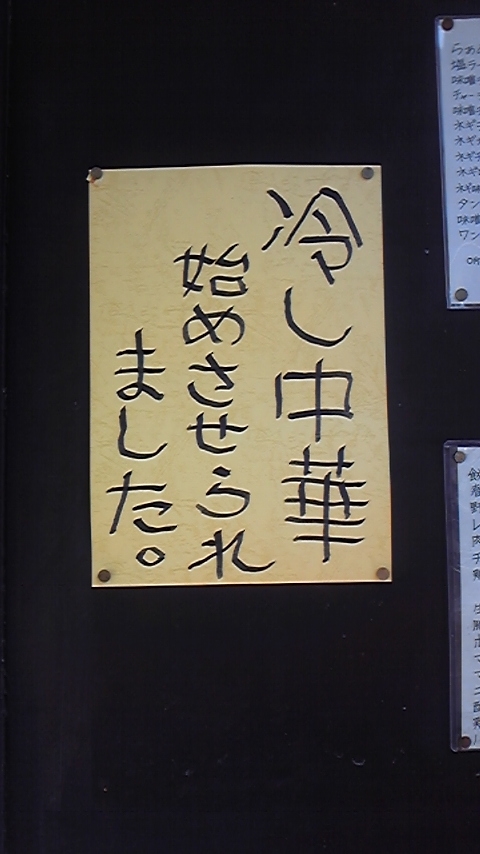 冷し中華
始めさせられ
ました。
らぁ
塩ラー
味噌
チャー
味噌
ネギ
ネギ
ネギ
ネギ
ネギ味
タン
味噌
ワン